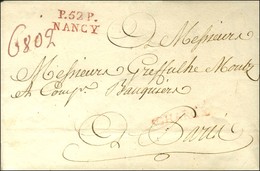 P.52.P.
NANCY
A Messieurs
Messieurs Greffulhe Montz
et Comp.e Banquiers
A Paris